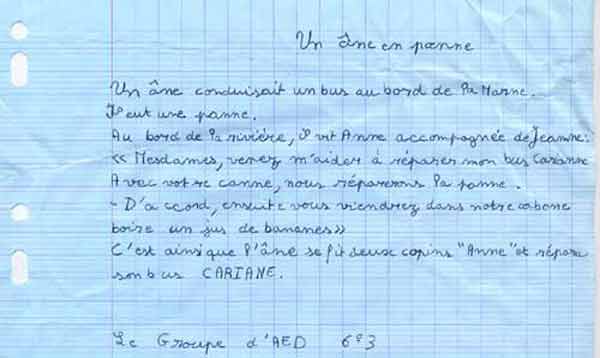 Un âne en panne
Un âne conduisait un bus au bord de la Marne.
Il eut une panne.
Au bord de la rivière, il vit Anne accompagnée de Jeanne:
« Mesdames, venez m'aider à réparer mon bus Cariane
Avec votre canne, nous réparerons la panne.
- D'accord, ensuite vous viendrez dans notre cabane
boire un jus de bananes»
C'est ainsi que l'âne se fit deux copins "Anne" et répara
son bus CARIANE.
Le Groupe d'AED 6e3